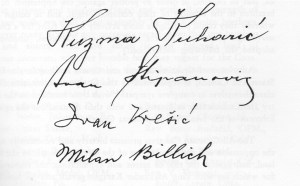 Kuzma Kuharić
Ivan Stipanović
Ivan Krešić
Milan Billich